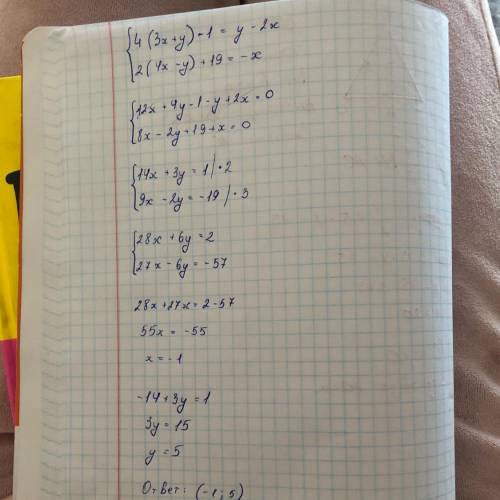 4(3x+y)-1 = y - 2x
2(4x-y)+19 = -x
12x + 4y - 1 - y + 2x = 0
8x - 2y + 19 + x = 0
14x + 3y = 1 | · 2
9x - 2y = -19 | · 3
28x + 6y = 2
27x - 6y = -57
28x + 27x = 2 - 57
55x = -55
x = -1
-14 + 3y = 1
3y = 15
y = 5
Ответ: (-1; 5)